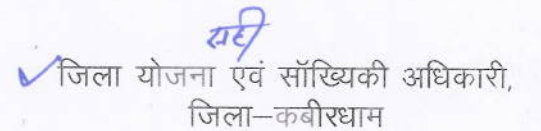 सही
जिला योजना एवं सॉख्यिकी अधिकारी,
जिला–कबीरधाम